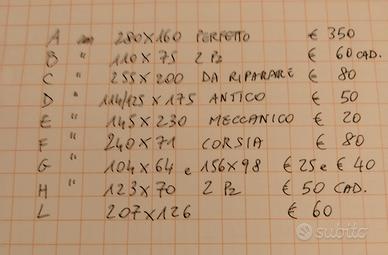 A cm 280x160 PERFETTO € 350
B " 110x75 2Pz € 60 CAD.
C " 255x200 DA RIPARARE € 80
D " 114/125x175 ANTICO € 50
E " 145x230 MECCANICO € 20
F " 240x71 CORSIA € 80
G " 104x64 e 156x98 €25 e €40
H " 123x70 2Pz €50 CAD.
L 207x126 € 60
subito